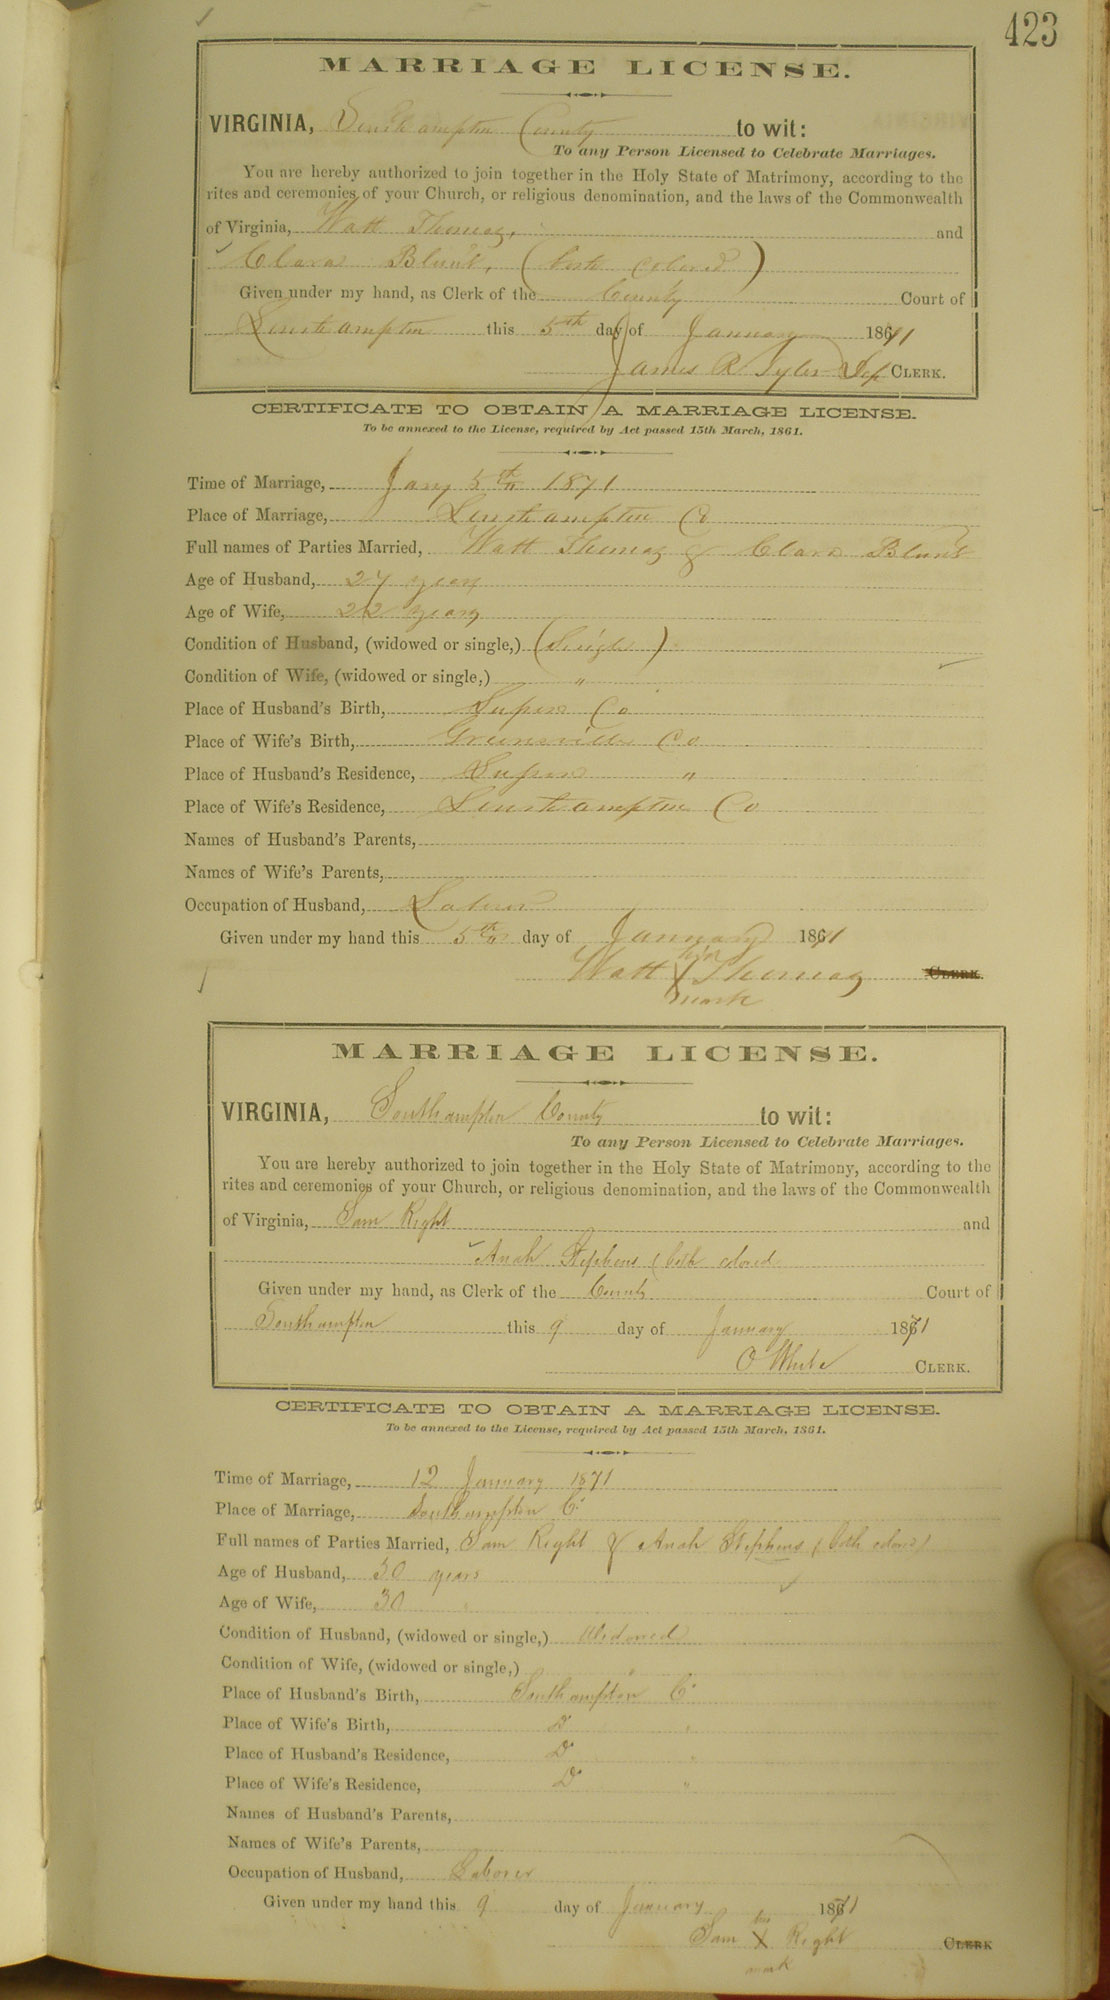 423
MARRIAGE LICENSE.
VIRGINIA, Southampton County to wit:
To any Person Licensed to Celebrate Marriages.
You are hereby authorized to join together in the Holy State of Matrimony, according to the
rites and ceremonies of your Church, or religious denomination, and the laws of the Commonwealth
of Virginia, Watt Thomas, and
Clara Blunt, (both colored)
Given under my hand, as Clerk of the County Court of
Southampton this 5th day of January 1871
James R Tyler Dep CLERK.
CERTIFICATE TO OBTAIN A MARRIAGE LICENSE.
To be annexed to the License, required by Act passed 15th March, 1861.
Time of Marriage, Jany 5th 1871
Place of Marriage, Southampton Co
Full names of Parties Married, Watt Thomas & Clara Blunt
Age of Husband, 24 years
Age of Wife, 22 years
Condition of Husband, (widowed or single,) (Single)
Condition of Wife, (widowed or single,) "
Place of Husband's Birth, Sussex Co
Place of Wife's Birth, Greensville Co
Place of Husband's Residence, Sussex "
Place of Wife's Residence, Southampton Co
Names of Husband's Parents,
Names of Wife's Parents,
Occupation of Husband, Laborer
Given under my hand this 5th day of January 1871
his
Watt X Thomas CLERK.
mark
MARRIAGE LICENSE.
VIRGINIA, Southampton County to wit:
To any Person Licensed to Celebrate Marriages.
You are hereby authorized to join together in the Holy State of Matrimony, according to the
rites and ceremonies of your Church, or religious denomination, and the laws of the Commonwealth
of Virginia, Sam Right and
Anah Stephens (both colored
Given under my hand, as Clerk of the County Court of
Southampton this 9 day of January 1871
O White CLERK.
CERTIFICATE TO OBTAIN A MARRIAGE LICENSE.
To be annexed to the License, required by Act passed 15th March, 1861.
Time of Marriage, 12 January 1871
Place of Marriage, Southampton Co
Full names of Parties Married, Sam Right & Anah Stephens (both colored)
Age of Husband, 30 years
Age of Wife, 30 "
Condition of Husband, (widowed or single,) Widowed
Condition of Wife, (widowed or single,) "
Place of Husband's Birth, Southampton Co
Place of Wife's Birth, Do "
Place of Husband's Residence, Do "
Place of Wife's Residence, Do "
Names of Husband's Parents,
Names of Wife's Parents,
Occupation of Husband, Laborer
Given under my hand this 9 day of January 1871
his
Sam X Right CLERK
mark